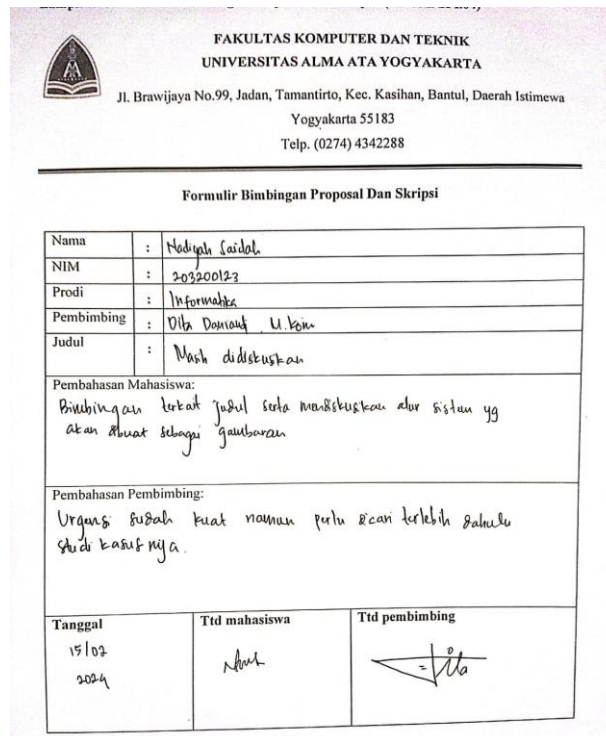 FAKULTAS KOMPUTER DAN TEKNIK
UNIVERSITAS ALMA ATA YOGYAKARTA
Jl. Brawijaya No.99, Jadan, Tamantirto, Kec. Kasihan, Bantul, Daerah Istimewa
Yogyakarta 55183
Telp. (0274) 4342288
Formulir Bimbingan Proposal Dan Skripsi
Nama : Nadiyah Saidah
NIM : 203200123
Prodi : Informatika
Pembimbing : Dita Danianti M.Kom
Judul : Masih didiskuskan
Pembahasan Mahasiswa:
Bimbingan terkait judul serta mendiskuskan alur sistem yg
akan dibuat sebagai gambaran
Pembahasan Pembimbing:
Urgensi sudah kuat namun perlu dicari terlebih dahulu
studi kasus nya.
Tanggal Ttd mahasiswa Ttd pembimbing
15/02
2024